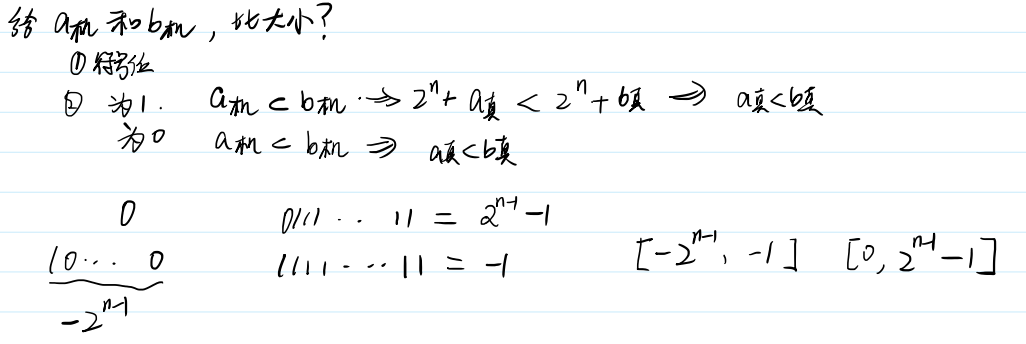 给 a机 和 b机 , 比大小?
① 符号位
② 为1. a机 < b机 ⇒ 2^n + a真 < 2^n + b真 ⇒ a真 < b真
为0 a机 < b机 ⇒ a真 < b真
0 0111 ·· 11 = 2^{n-1} - 1
10··· 0 1111 ··· 11 = -1 [-2^{n-1}, -1] [0, 2^{n-1} - 1]
-2^{n-1}